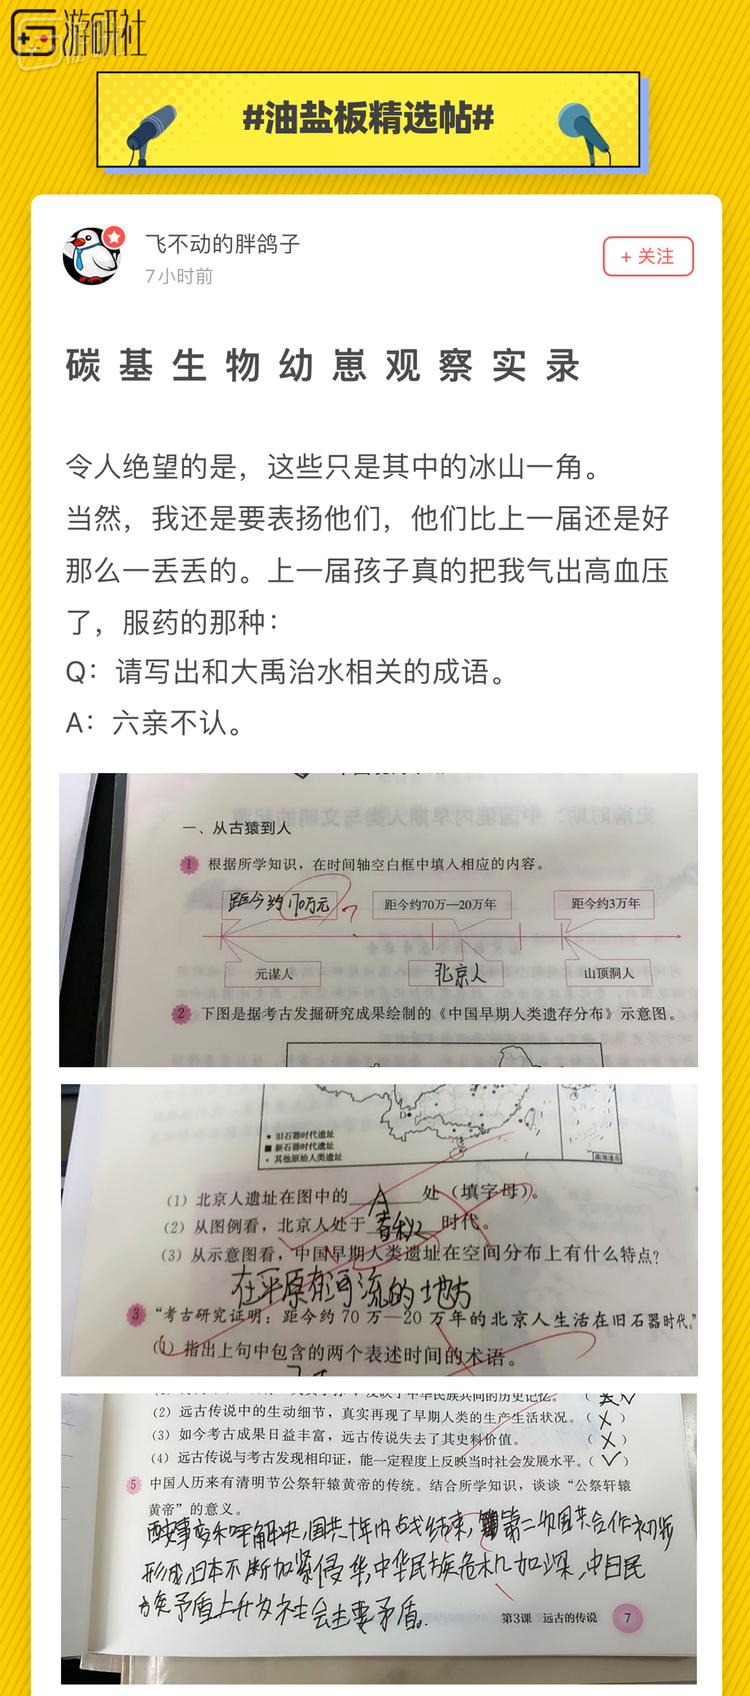 游研社
#油盐板精选帖#
飞不动的胖鸽子
7小时前
+ 关注
碳基生物幼崽观察实录
令人绝望的是，这些只是其中的冰山一角。
当然，我还是要表扬他们，他们比上一届还是好
那么一丢丢的。上一届孩子真的把我气出高血压
了，服药的那种：
Q：请写出和大禹治水相关的成语。
A：六亲不认。
一、从古猿到人
1 根据所学知识，在时间轴空白框中填入相应的内容。
距今约170万元 ? 距今约70万—20万年 距今约3万年
元谋人 北京人 山顶洞人
2 下图是据考古发掘研究成果绘制的《中国早期人类遗存分布》示意图。
D
旧石器时代遗址
新石器时代遗址
其他原始人类遗址
南海诸岛
(1) 北京人遗址在图中的 A 处（填字母）。
(2) 从图例看，北京人处于 春秋 时代。
(3) 从示意图看，中国早期人类遗址在空间分布上有什么特点？
在平原有河流的地方
3 “考古研究证明：距今约 70 万—20 万年的北京人生活在旧石器时代。”
(1) 指出上句中包含的两个表述时间的术语。
中华民族共同的历史记忆。
(2) 远古传说中的生动细节，真实再现了早期人类的生产生活状况。（ X ）
(3) 如今考古成果日益丰富，远古传说失去了其史料价值。（ X ）
(4) 远古传说与考古发现相印证，能一定程度上反映当时社会发展水平。（ √ ）
5 中国人历来有清明节公祭轩辕黄帝的传统。结合所学知识，谈谈“公祭轩辕
黄帝”的意义。
西安事变和平解决，国共十年内战结束，第二次国共合作初步
形成，日本不断加紧侵华，中华民族危机加深，中日民
族矛盾上升为社会主要矛盾。
第3课 远古的传说 7